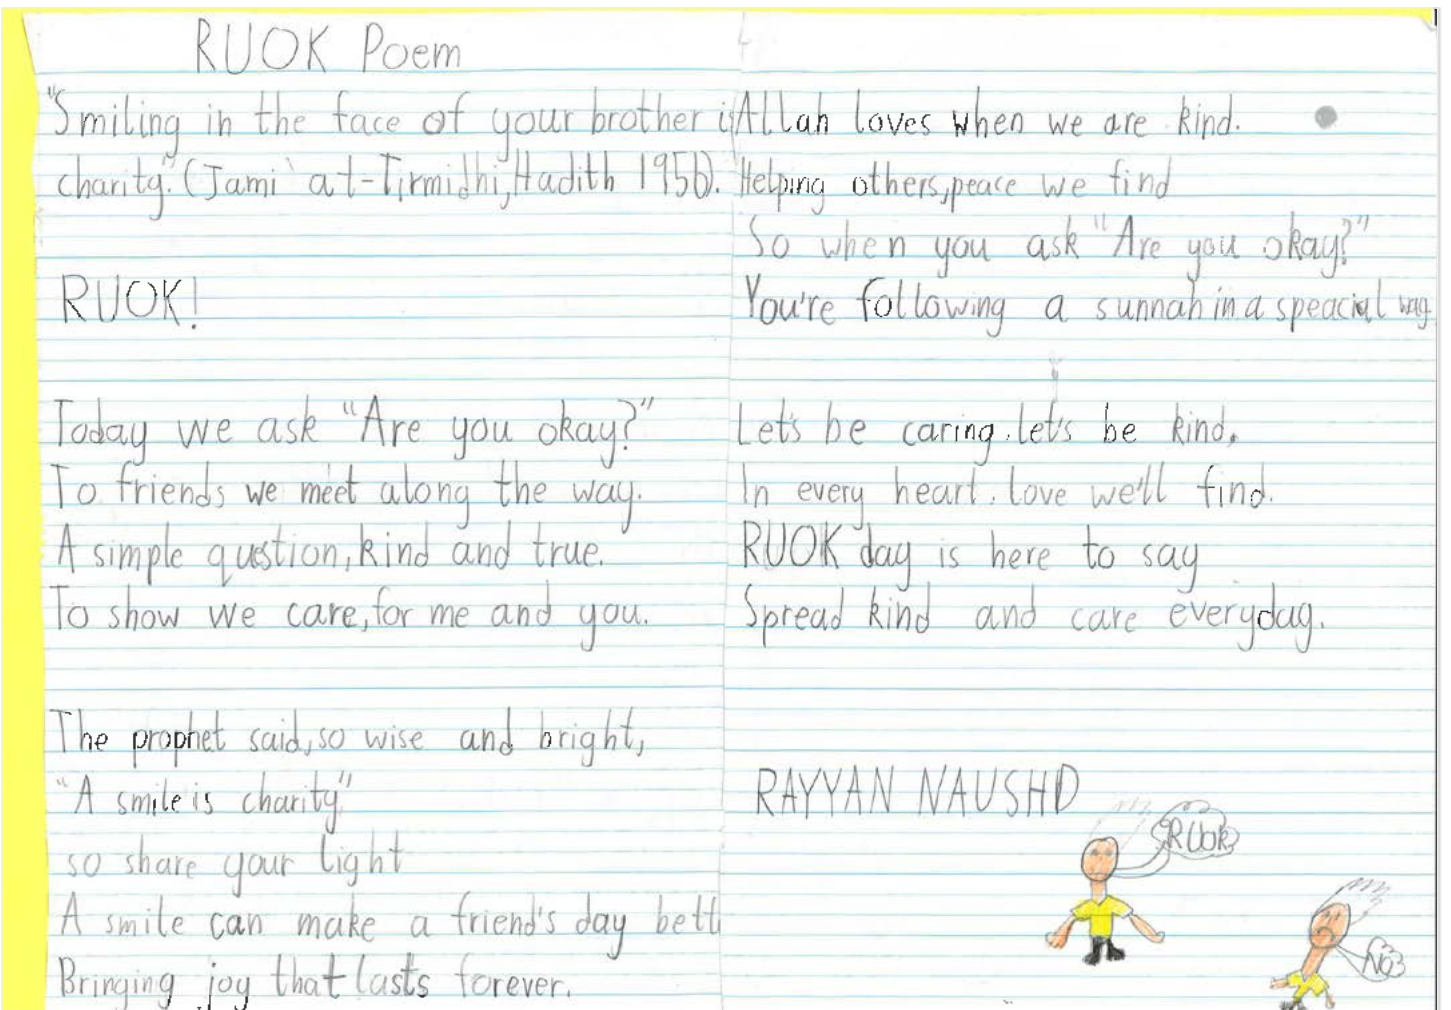 RUOK Poem
"Smiling in the face of your brother i
charity". (Jami` at-Tirmidhi, Hadith 1956).
RUOK!
Today we ask "Are you okay?"
To friends we meet along the way.
A simple question, kind and true.
To show we care, for me and you.
The prophet said, so wise and bright,
"A smile is charity"
so share your light
A smile can make a friend's day bett
Bringing joy that lasts forever.
Allah loves when we are kind.
Helping others, peace we find
So when you ask "Are you okay?"
You're following a sunnah in a speacial way
Let's be caring, let's be kind,
In every heart, love we'll find.
RUOK day is here to say
Spread kind and care everyday.
RAYYAN NAUSHD
RUOK